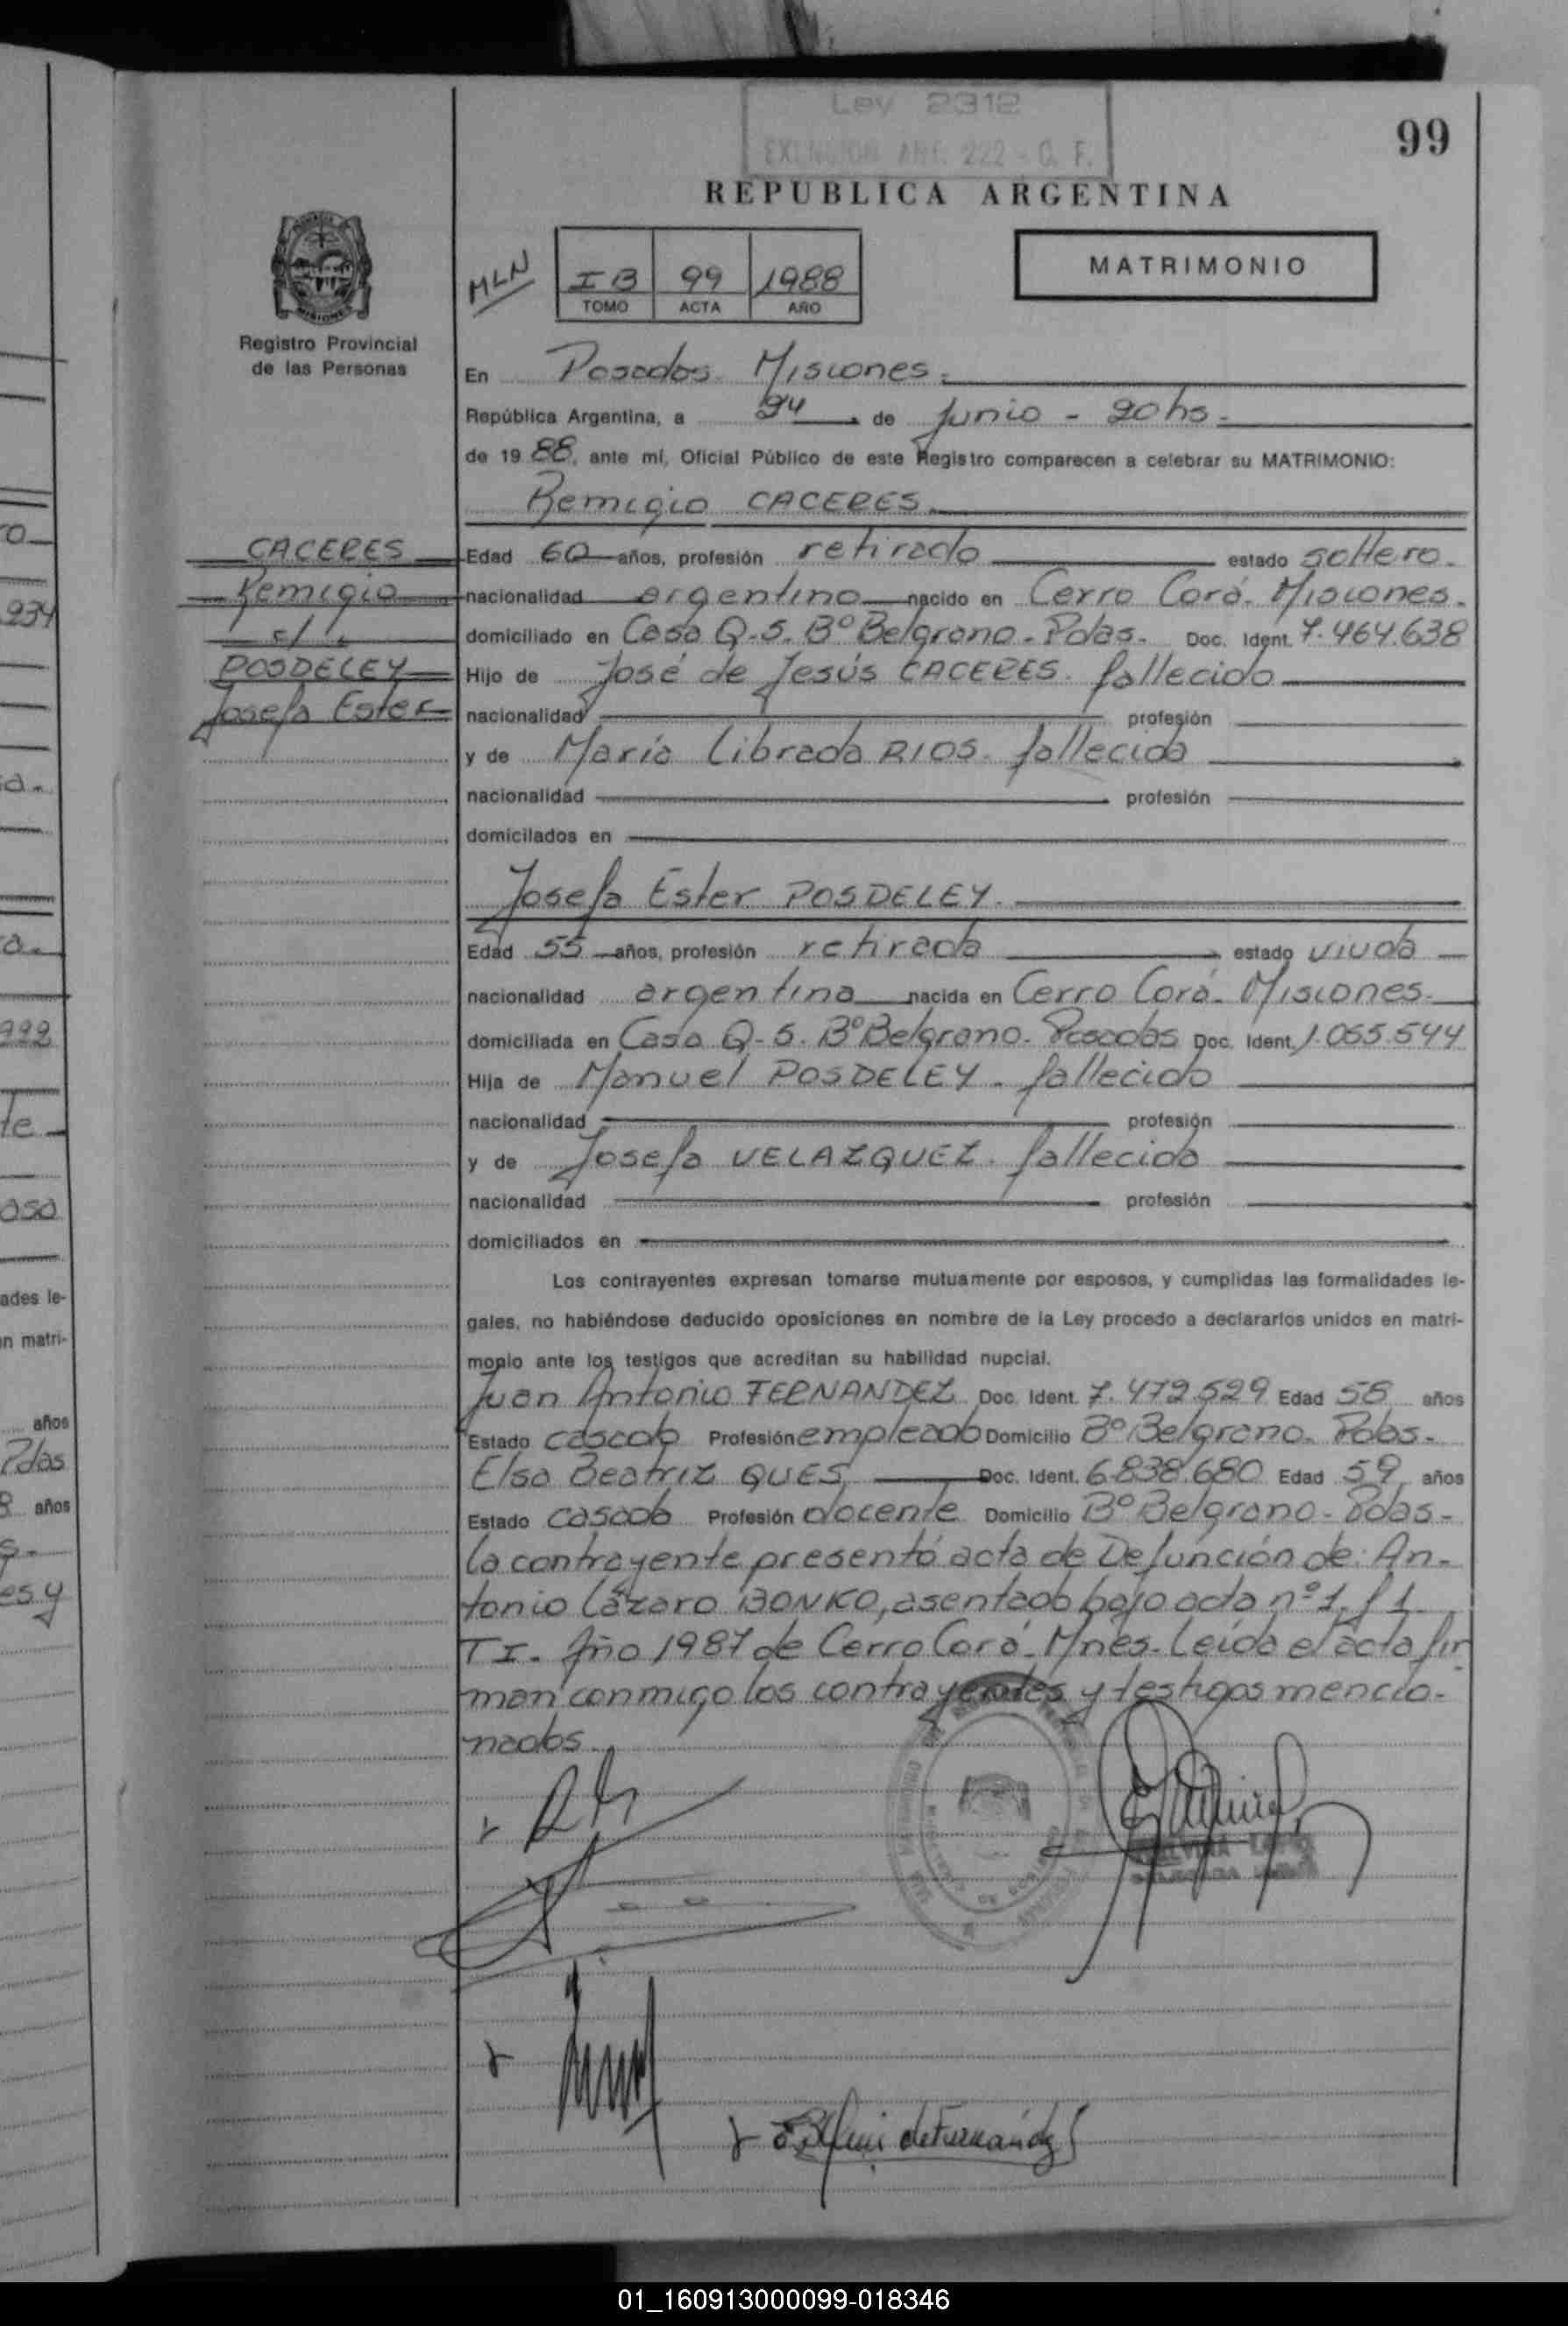 Ley 2312
EXENCION ART. 222 - C. F.
99
REPUBLICA ARGENTINA
MLN
I B 99 1988
TOMO ACTA AÑO
MATRIMONIO
Registro Provincial
de las Personas
En Posadas Misiones.
República Argentina, a 24 de Junio - 20hs.
de 19 88, ante mí, Oficial Público de este Registro comparecen a celebrar su MATRIMONIO:
Remigio CACERES.
CACERES
Remigio
c/
POSDELEY
Josefa Ester
Edad 60 años, profesión retirado estado soltero.
nacionalidad argentino nacido en Cerro Corá. Misiones.
domiciliado en Casa Q-5. B° Belgrano. Pdas. Doc. Ident. 7.464.638
Hijo de José de Jesús CACERES. fallecido
nacionalidad profesión
y de María Librada RIOS. fallecida
nacionalidad profesión
domicilados en
Josefa Ester POSDELEY.
Edad 55 años, profesión retirada estado viuda
nacionalidad argentina nacida en Cerro Corá. Misiones.
domiciliada en Casa Q-5. B° Belgrano. Posadas Doc. Ident. 1.055.544
Hija de Manuel POSDELEY. fallecido
nacionalidad profesión
y de Josefa VELAZQUEZ. fallecida
nacionalidad profesión
domiciliados en
Los contrayentes expresan tomarse mutuamente por esposos, y cumplidas las formalidades le-
gales, no habiéndose deducido oposiciones en nombre de la Ley procedo a declararlos unidos en matri-
monio ante los testigos que acreditan su habilidad nupcial.
Juan Antonio FERNANDEZ Doc. Ident. 7.472.529 Edad 58 años
Estado casado Profesión empleado Domicilio B° Belgrano. Pdas.
Elsa Beatriz QUES Doc. Ident. 6.838.680 Edad 59 años
Estado casada Profesión docente Domicilio B° Belgrano - Pdas -
la contrayente presentó acta de Defunción de: An-
tonio Lázaro BONKO, asentada bajo acta n° 1. f 1.
T I. Año 1987 de Cerro Corá. Mnes. Leída el acta fir
man conmigo los contrayentes y testigos mencio-
nados.
de Fernández
ades le-
n matri-
años
Pdas
años
es y
01_160913000099-018346